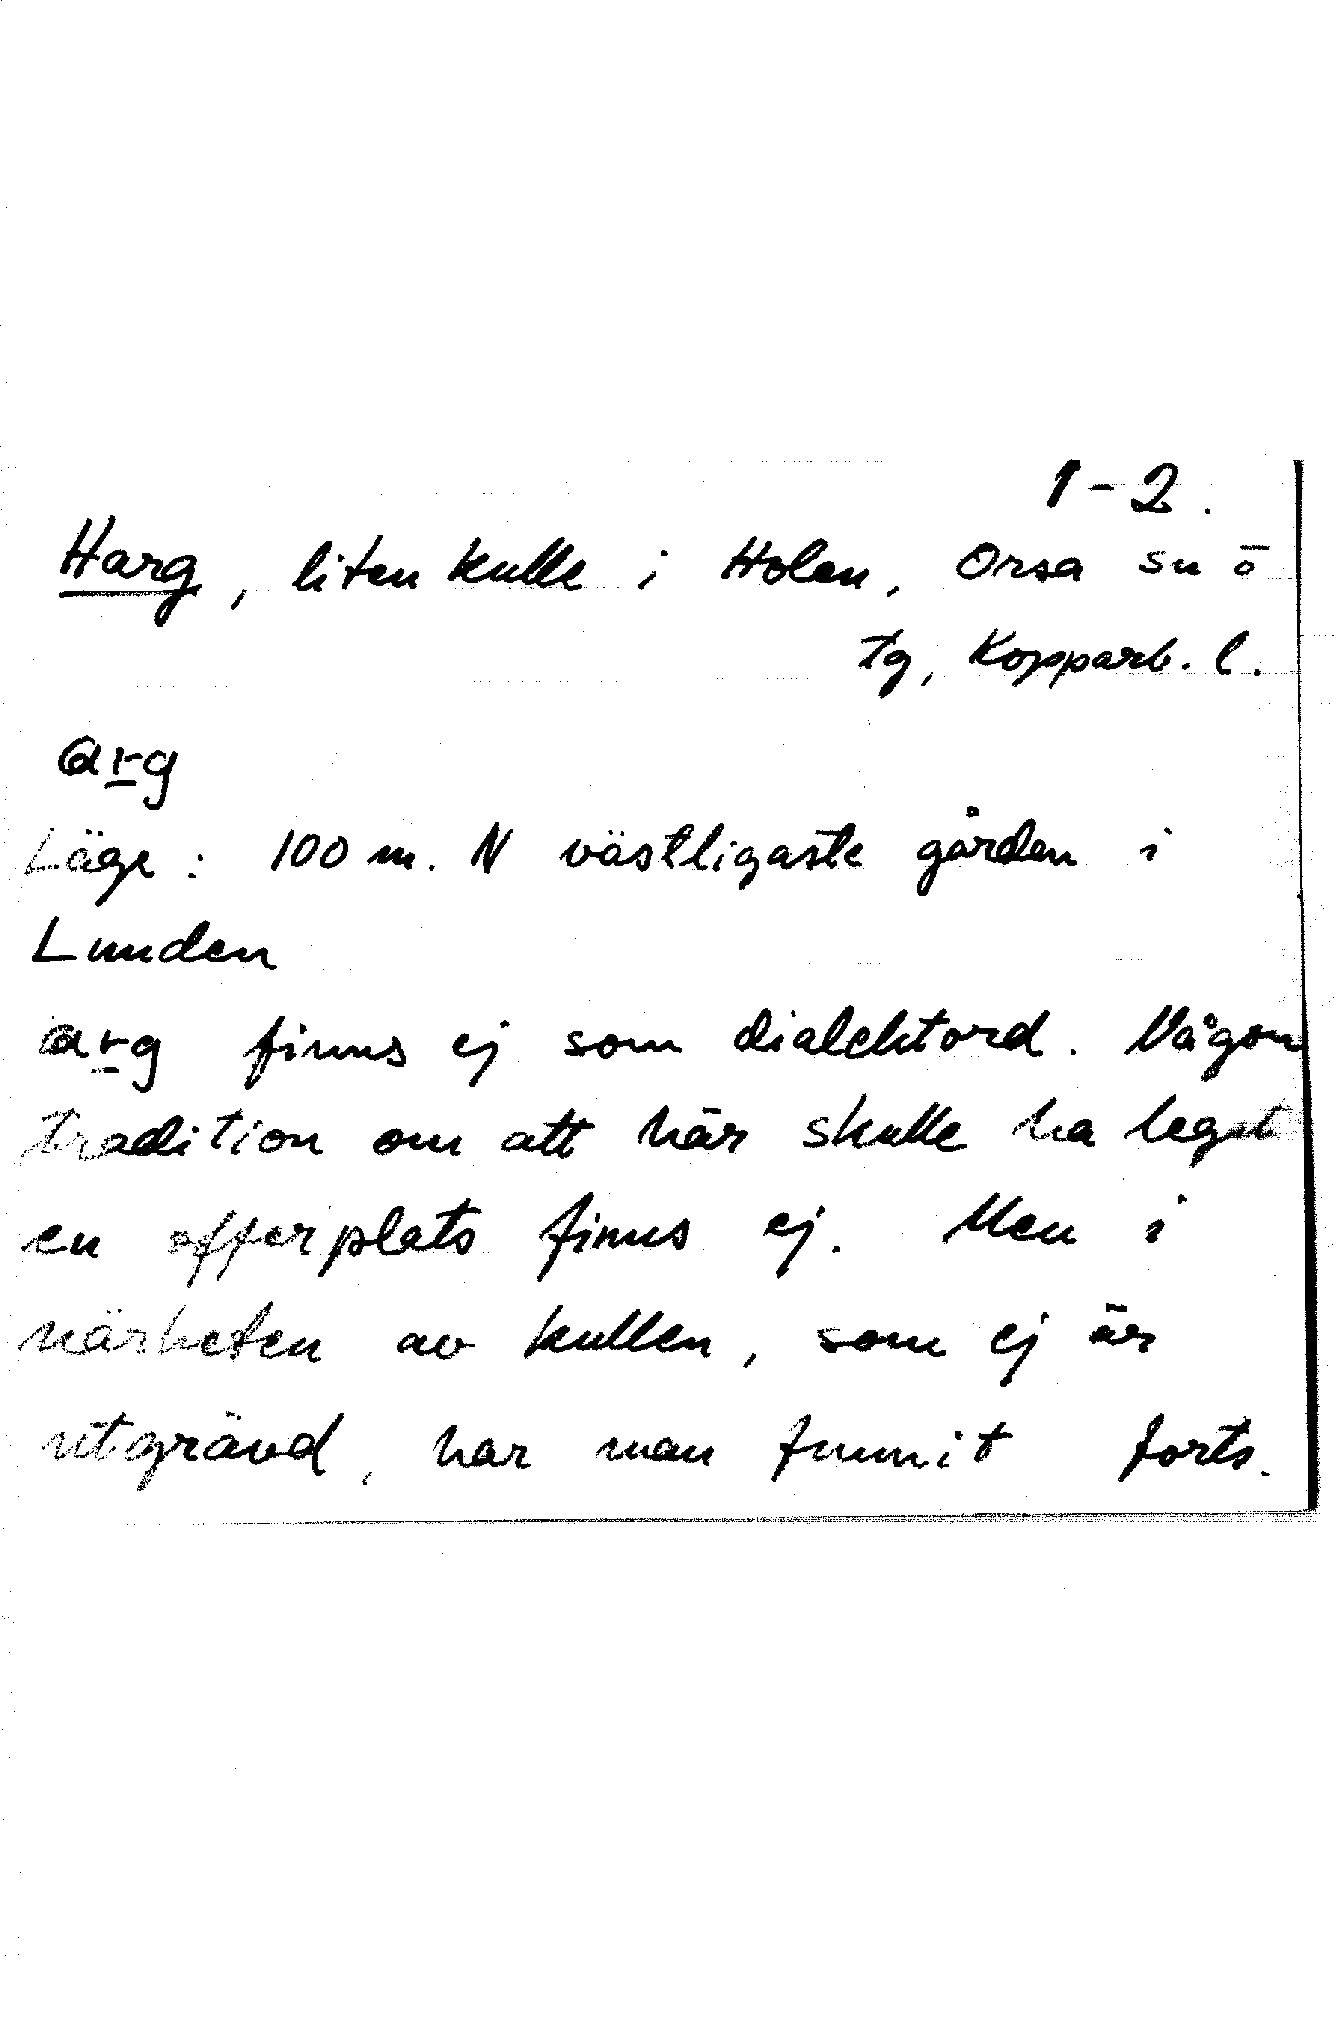 1-2.
Harg, liten kulle i Holen, Orsa sn ö
tg, Kopparb. l.
arg
Läge: 100 m. N västligaste gården i
Lunden
arg finns ej som dialektord. Någon
tradition om att här skulle ha legat
en offerplats finns ej. Men i
närheten av kullen, som ej är
utgrävd, har man funnit forts.